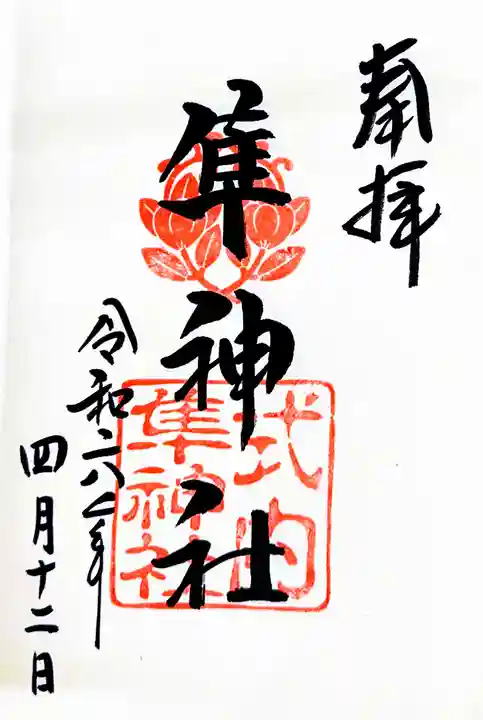 奉拝
隼神社
式内
隼神社
令和六年
四月十二日